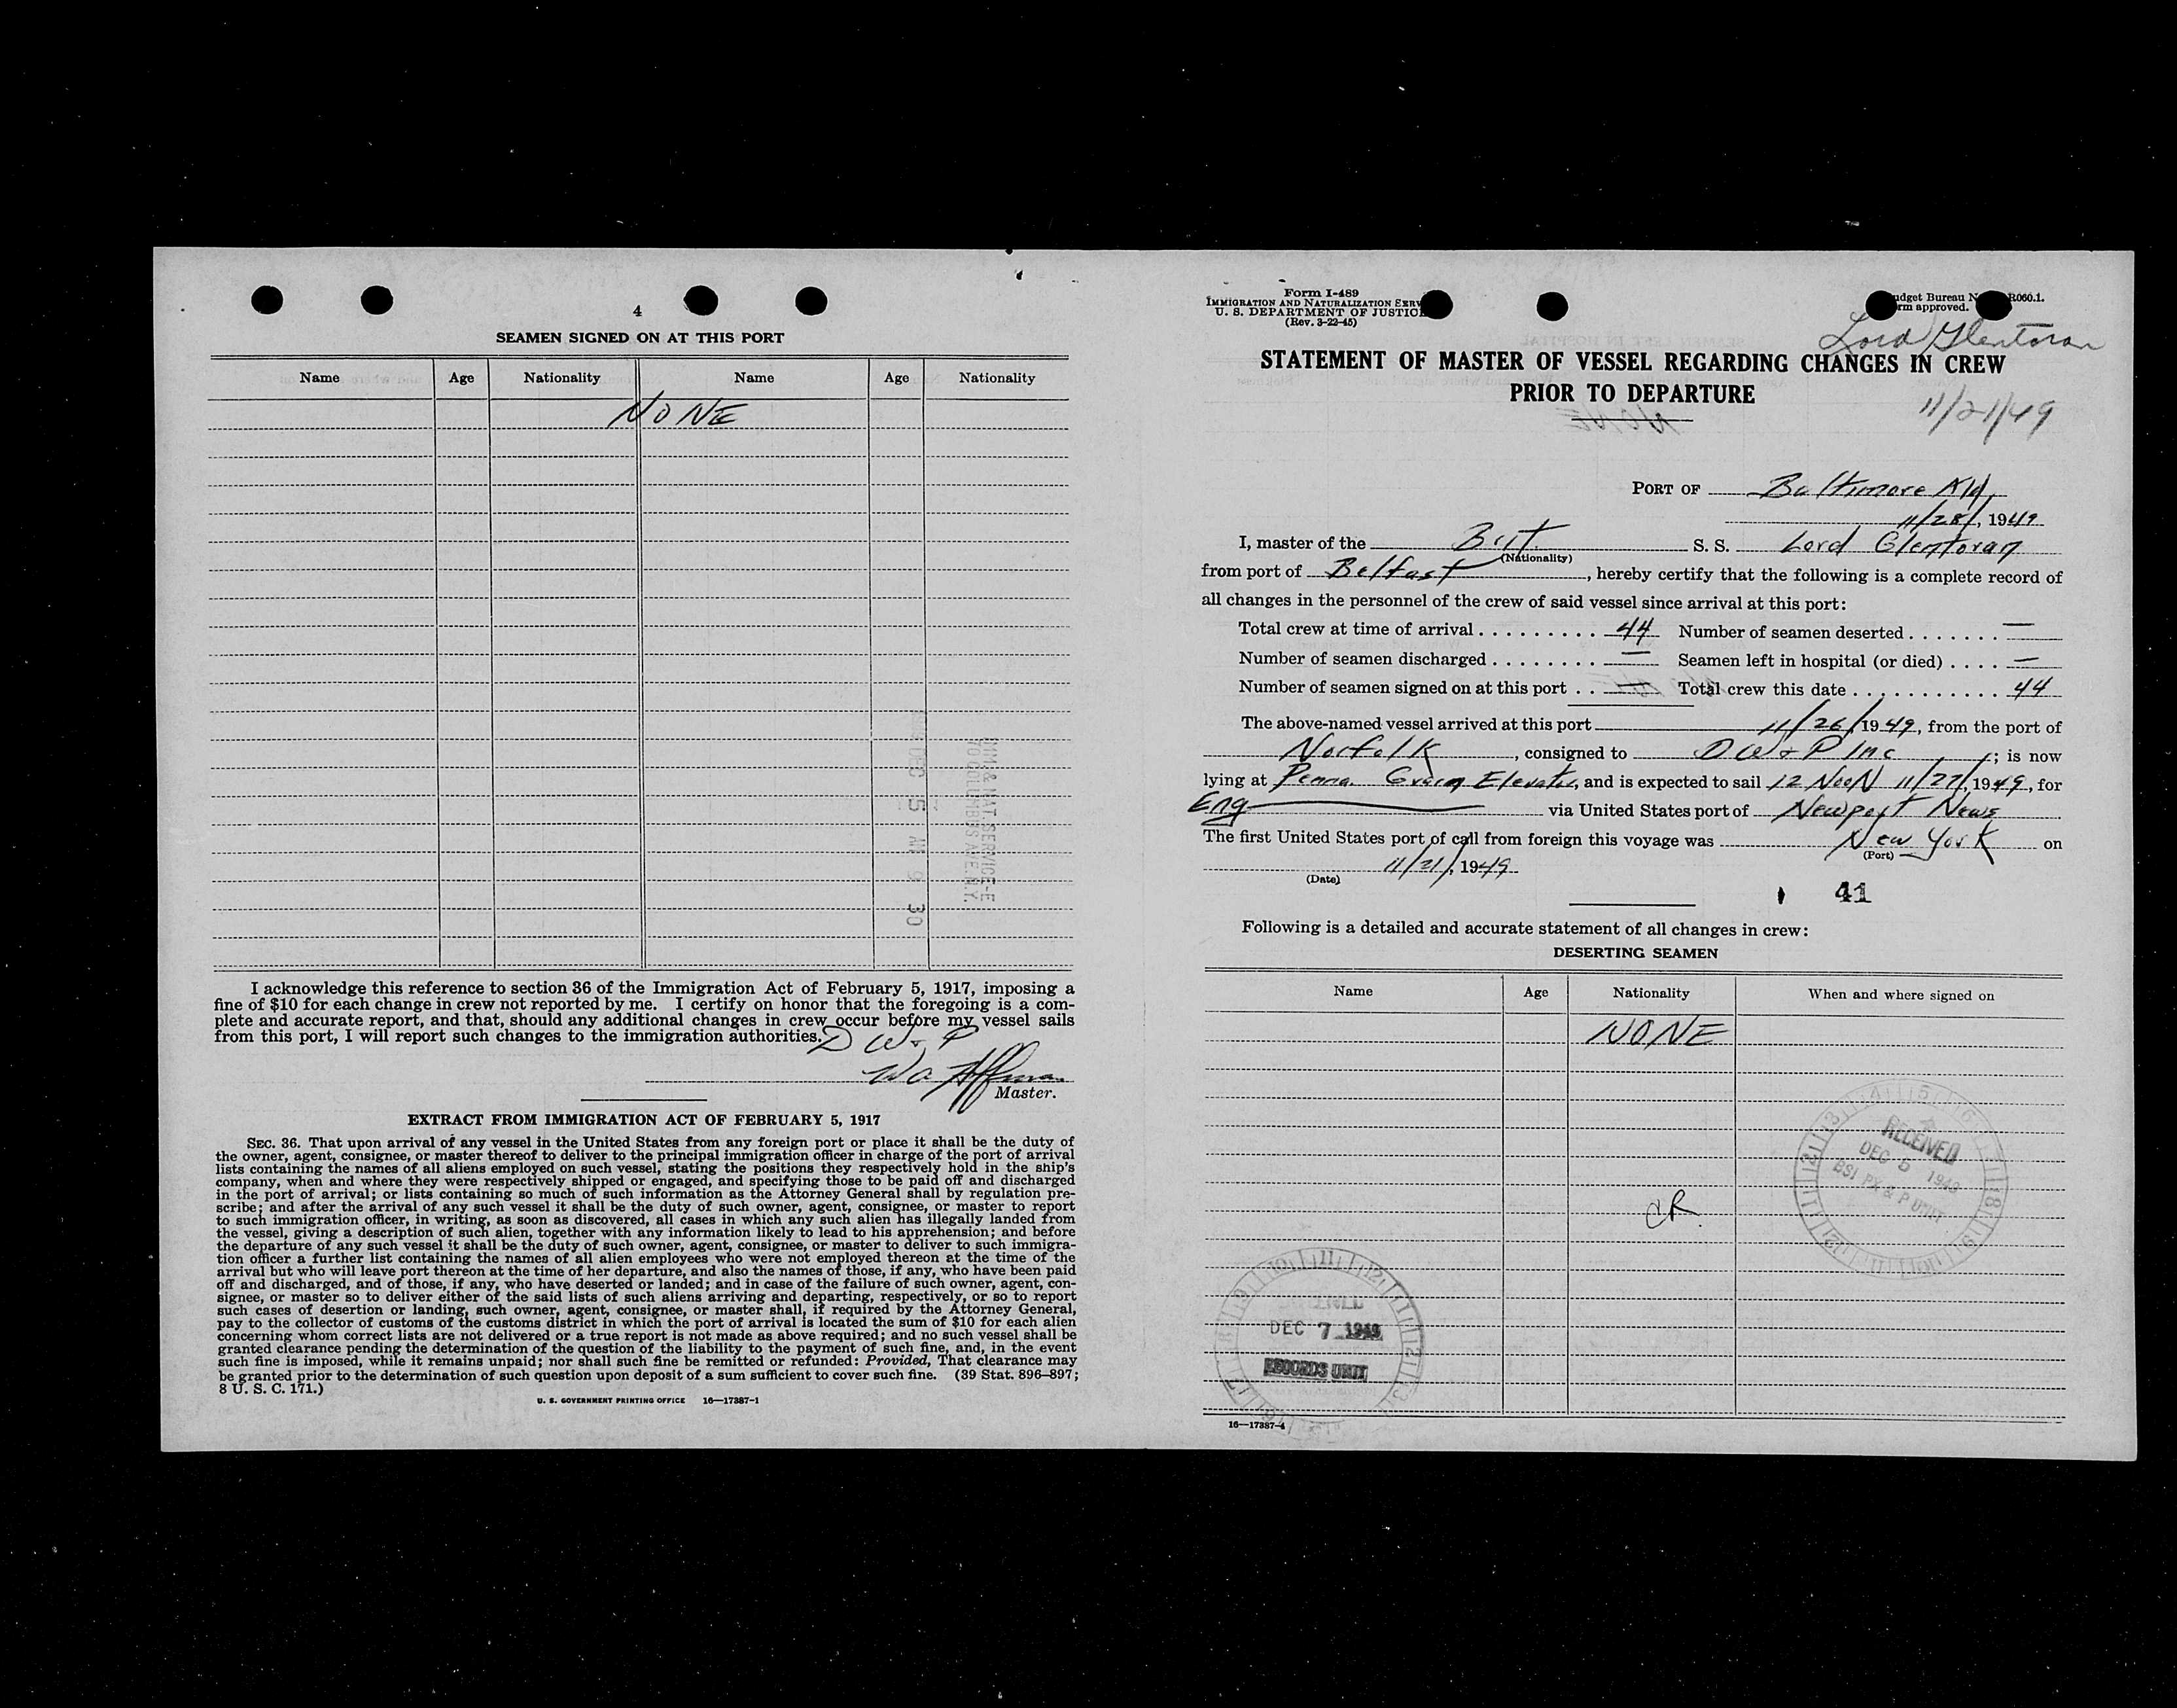 4
SEAMEN SIGNED ON AT THIS PORT
Name Age Nationality Name Age Nationality
NONE
I acknowledge this reference to section 36 of the Immigration Act of February 5, 1917, imposing a
fine of $10 for each change in crew not reported by me. I certify on honor that the foregoing is a com-
plete and accurate report, and that, should any additional changes in crew occur before my vessel sails
from this port, I will report such changes to the immigration authorities.
D W & P
Master.
EXTRACT FROM IMMIGRATION ACT OF FEBRUARY 5, 1917
SEC. 36. That upon arrival of any vessel in the United States from any foreign port or place it shall be the duty of
the owner, agent, consignee, or master thereof to deliver to the principal immigration officer in charge of the port of arrival
lists containing the names of all aliens employed on such vessel, stating the positions they respectively hold in the ship's
company, when and where they were respectively shipped or engaged, and specifying those to be paid off and discharged
in the port of arrival; or lists containing so much of such information as the Attorney General shall by regulation pre-
scribe; and after the arrival of any such vessel it shall be the duty of such owner, agent, consignee, or master to report
to such immigration officer, in writing, as soon as discovered, all cases in which any such alien has illegally landed from
the vessel, giving a description of such alien, together with any information likely to lead to his apprehension; and before
the departure of any such vessel it shall be the duty of such owner, agent, consignee, or master to deliver to such immigra-
tion officer a further list containing the names of all alien employees who were not employed thereon at the time of the
arrival but who will leave port thereon at the time of her departure, and also the names of those, if any, who have been paid
off and discharged, and of those, if any, who have deserted or landed; and in case of the failure of such owner, agent, con-
signee, or master so to deliver either of the said lists of such aliens arriving and departing, respectively, or so to report
such cases of desertion or landing, such owner, agent, consignee, or master shall, if required by the Attorney General,
pay to the collector of customs of the customs district in which the port of arrival is located the sum of $10 for each alien
concerning whom correct lists are not delivered or a true report is not made as above required; and no such vessel shall be
granted clearance pending the determination of the question of the liability to the payment of such fine, and, in the event
such fine is imposed, while it remains unpaid; nor shall such fine be remitted or refunded: Provided, That clearance may
be granted prior to the determination of such question upon deposit of a sum sufficient to cover such fine. (39 Stat. 896–897;
8 U. S. C. 171.)
U. S. GOVERNMENT PRINTING OFFICE 16—17387-1
Form I-489
IMMIGRATION AND NATURALIZATION SERV
U. S. DEPARTMENT OF JUSTIC
(Rev. 3-22-45)
udget Bureau N R060.1.
rm approved.
Lord Glentoran
STATEMENT OF MASTER OF VESSEL REGARDING CHANGES IN CREW
PRIOR TO DEPARTURE
11/21/49
PORT OF Baltimore Md,
11/28/, 1949
I, master of the Brit. S. S. Lord Glentoran
(Nationality)
from port of Belfast, hereby certify that the following is a complete record of
all changes in the personnel of the crew of said vessel since arrival at this port:
Total crew at time of arrival 44 Number of seamen deserted —
Number of seamen discharged — Seamen left in hospital (or died) —
Number of seamen signed on at this port — Total crew this date 44
The above-named vessel arrived at this port 11/26/1949, from the port of
Norfolk, consigned to D W & P Inc; is now
lying at Penna. Grain Elevator, and is expected to sail 12 NooN 11/27/, 1949, for
Eng via United States port of Newport News
The first United States port of call from foreign this voyage was New York on
(Port)
11/21/, 1949
(Date)
41
Following is a detailed and accurate statement of all changes in crew:
DESERTING SEAMEN
Name Age Nationality When and where signed on
NONE
RECEIVED
DEC 5 1949
BSI PX & P UNIT
CR.
DEC 7 1949
RECORDS UNIT
16—17387-4